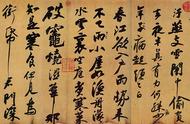 汙燕支雪闇中偷負
去夜半真有力何殊少
年子病起頭已白
春江欲入戶雨勢來
不已雨小屋如漁舟
水雲裏空庖煮寒菜
破竈燒濕葦
那知是寒食但見烏
銜帋君門深